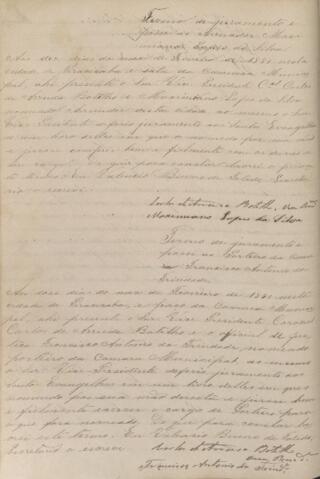 Termo de juramento e
posse ao arruador Maxi-
miano Lopes da Silva
Aos dez dias do mez de Fevereiro de 1881 nesta
cidade de e sala da Camara Munici-
pal, ahi presente o Snr Vice Presidente Cel Carlos
de Arruda Botelho e Maximiano Lopes da Silva
nomeado arruador desta cidade ao mesmo o Snr
Vice Presidente deferio juramento aos Santos Evangelhos
em um livro delles em que
jurou cumprir bem e fielmente com os deveres de
seu cargo e que para constar
Eu Tulencio Bueno de Toledo, Secreta-
rio o escrevi
Carlos de Arruda Botelho,
Maximiano Lopes da Silva
Termo de juramento e
posse ao Porteiro da Cama-
ra Francisco Antonio da
Trindade
Aos dez dias do mez de Fevereiro de 1881 nesta
cidade de e paço da Camara Munici-
pal, ahi presente o Snr Vice Presidente Coronel
Carlos de Arruda Botelho e o official de jus-
tiça Francisco Antonio da Trindade, nomeado
porteiro da Camara Municipal ao mesmo
o Snr Vice Presidente deferio juramento aos
Santos Evangelhos em um livro delles em que
pondo sua mão direita e jurou bem
e fielmente exercer o cargo de Porteiro para
o que fora nomeado. Do que para constar la-
vrei este termo. Eu Tulencio Bueno de Toledo,
Secretario o escrevi
Carlos de Arruda Botelho
Francisco Antonio da Trindade